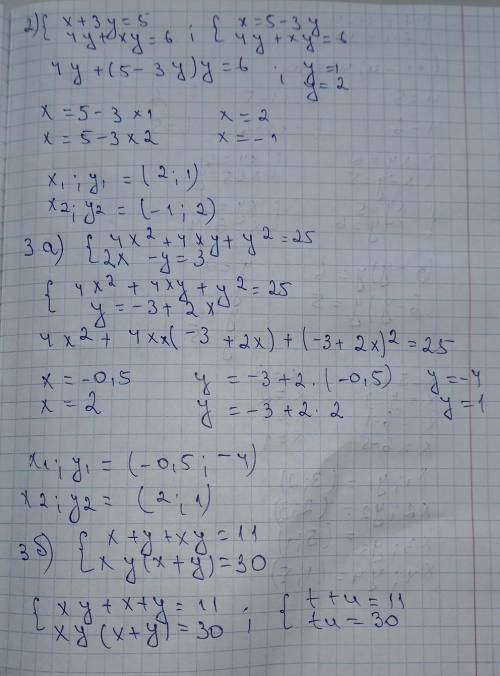 2) { x + 3y = 5 ; { x = 5 - 3y
4y + xy = 6 4y + xy = 6
4y + (5 - 3y)y = 6 ; y = 1
y = 2
x = 5 - 3 × 1 x = 2
x = 5 - 3 × 2 x = -1
x₁; y₁ = (2; 1)
x₂; y₂ = (-1; 2)
3а) { 4x² + 4xy + y² = 25
2x - y = 3
{ 4x² + 4xy + y² = 25
y = -3 + 2x
4x² + 4x×(-3 + 2x) + (-3 + 2x)² = 25
x = -0,5 y = -3 + 2 · (-0,5) y = -4
x = 2 y = -3 + 2 · 2 y = 1
x₁; y₁ = (-0,5; -4)
x₂; y₂ = (2; 1)
3б) { x + y + xy = 11
xy(x + y) = 30
{ xy + x + y = 11 ; { t + u = 11
xy(x + y) = 30 tu = 30